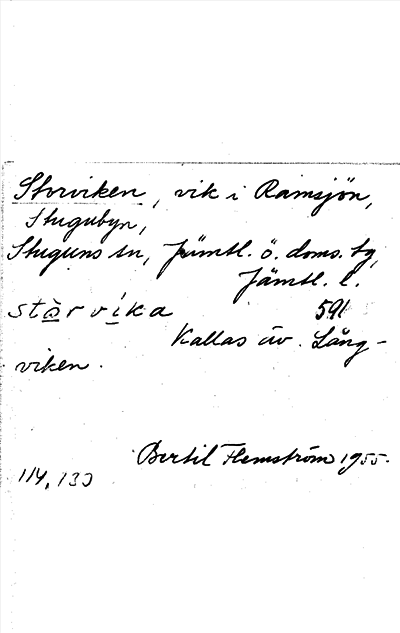 Storviken, vik i Ramsjön,
Stugubyn,
Stuguns sn, Jämtl. ö. doms. tg,
Jämtl. l.
stàr víka 591
Kallas äv. Lång-
viken.
Bertil Flemström 1955.
114, 133